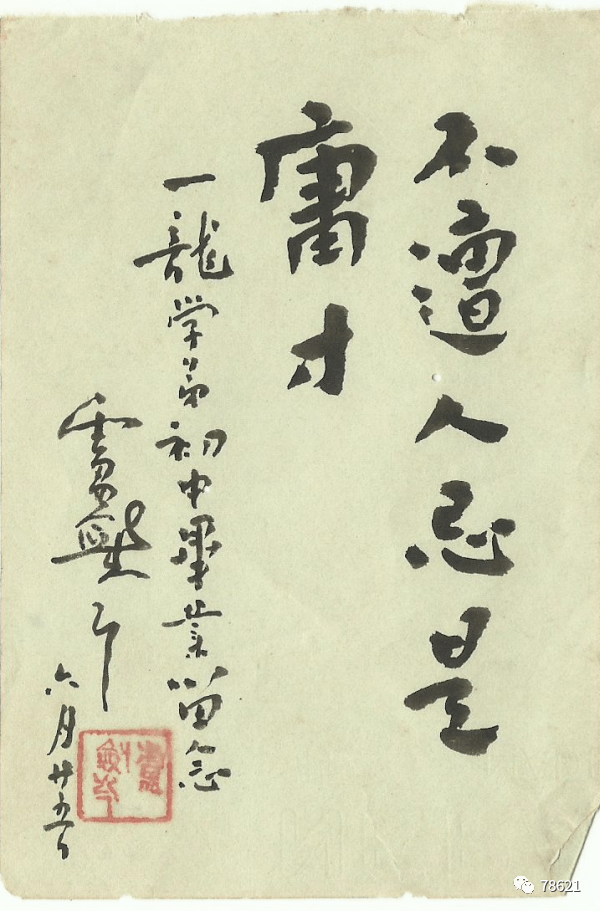 不遭人忌是
庸才
一龍学弟初中畢業留念
六月廿五日
78621